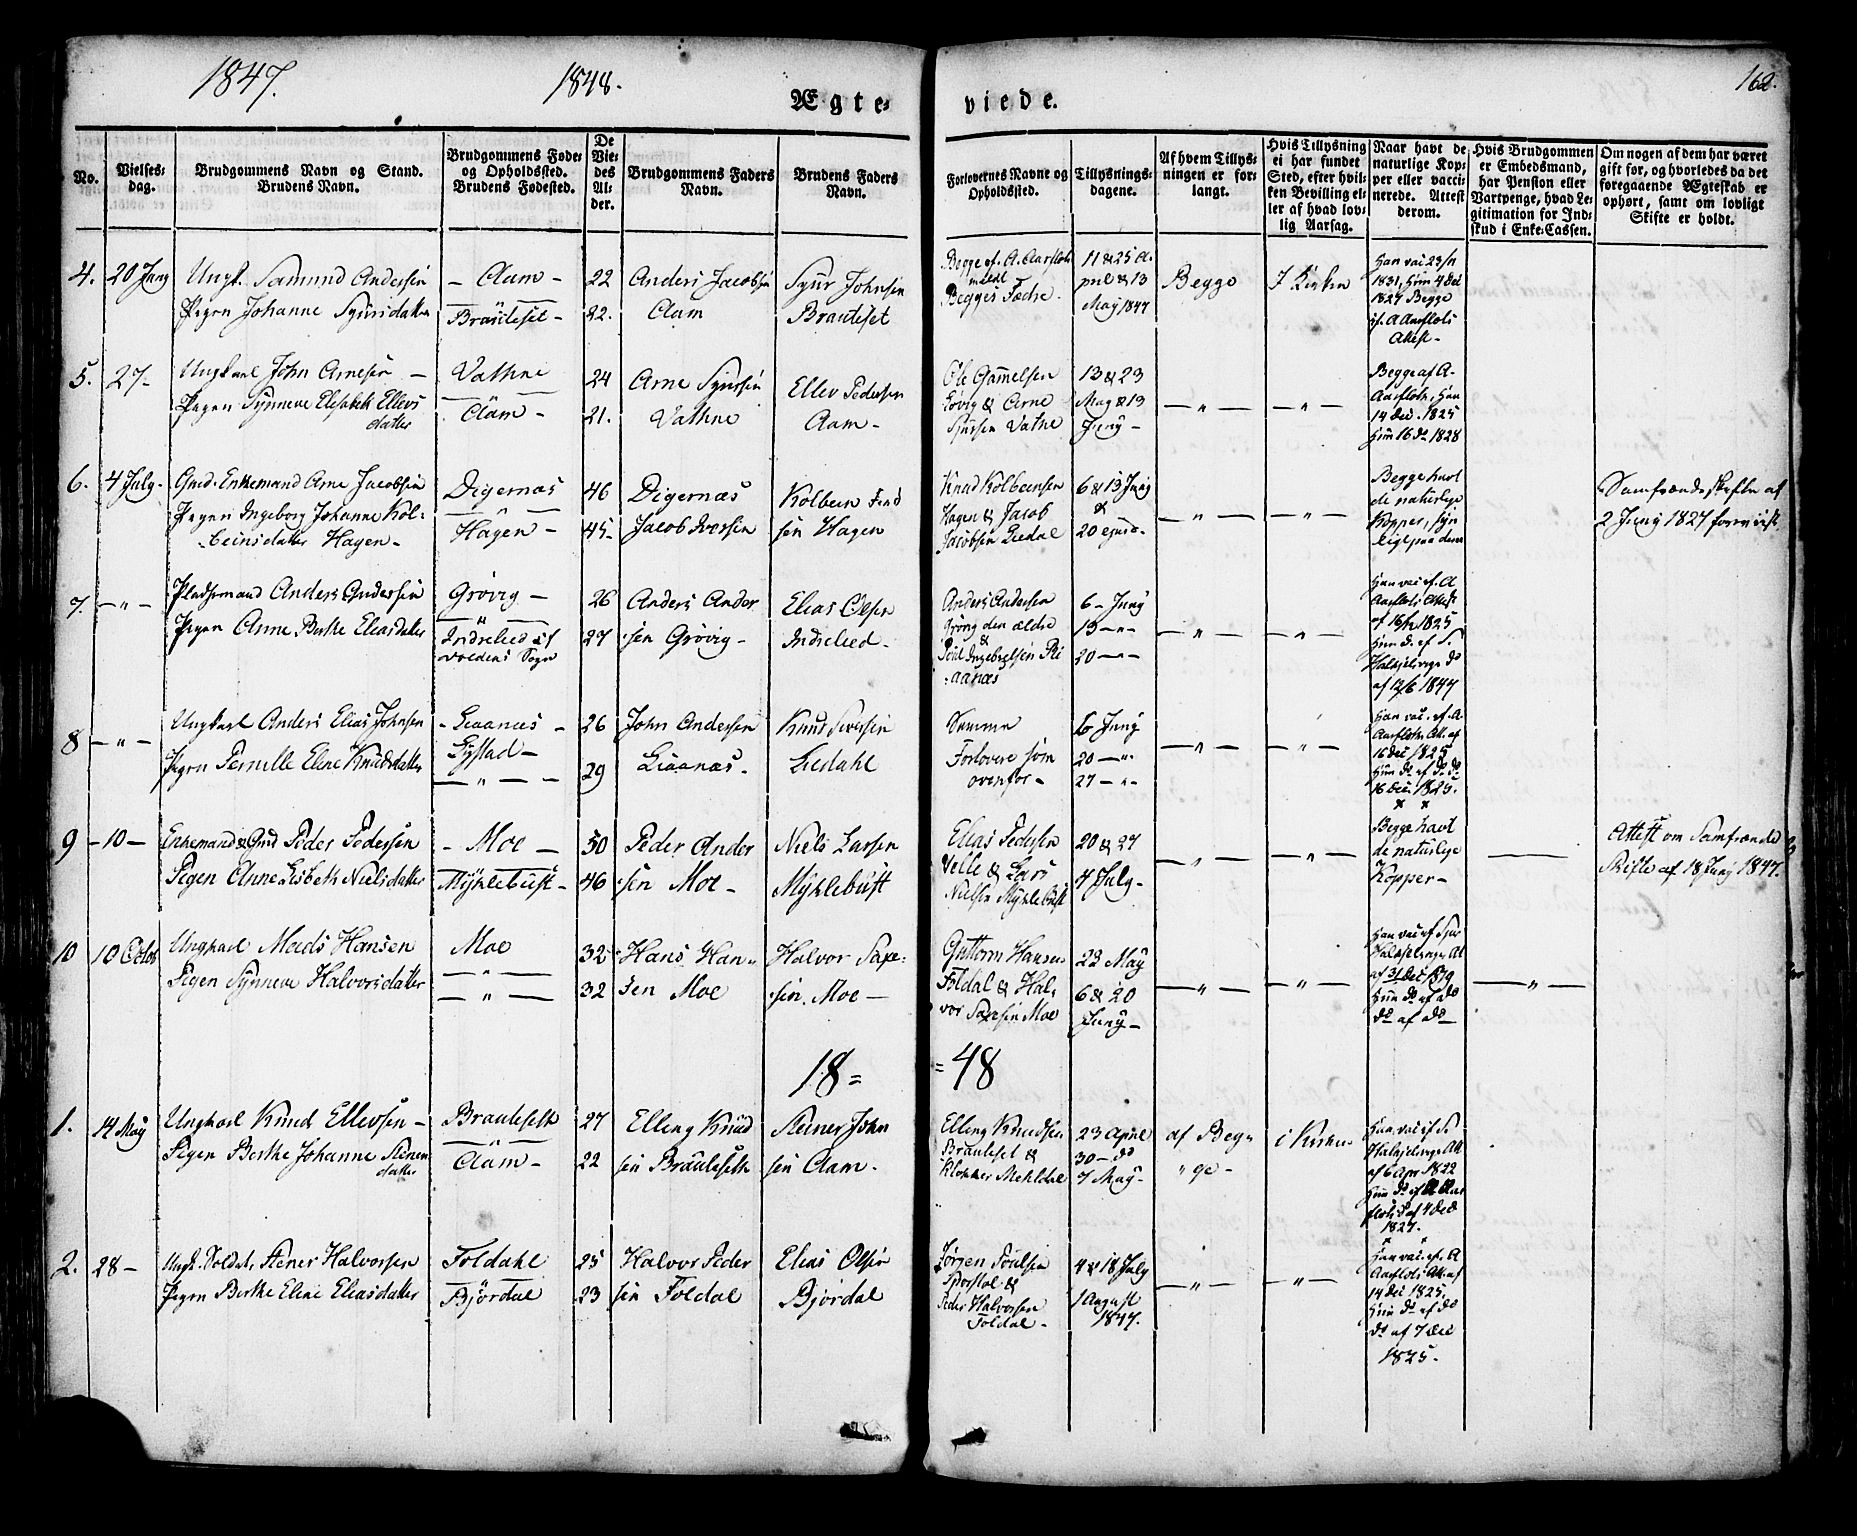 1847.
1848.
Ægte=
viede.
162.
No.
Vielses=
dag.
Brudgommens Navn og Stand.
Brudens Navn.
Brudgommens Føde=
og Opholdssted.
Brudens Fødested.
De
Vie=
des
Al=
der.
Brudgommens Faders
Navn.
Brudens Faders
Navn.
Forlovernes Navne og
Opholdssted.
Tillysnings=
dagene.
Af hvem Tillys=
ningen er for=
langt.
Hvis Tillysning
ei har fundet
Sted, efter hvil=
ken Bevilling el=
ler af hvad lov=
lig Aarsag.
Naar havt de
naturlige Kop=
per eller vacci=
nerede. Attest
derom.
Hvis Brudgommen
er Embedsmand,
har Pension eller
Vartpenge, hvad Le=
gitimation for Ind=
skud i Enke=Cassen.
Om nogen af dem har været
gift før, og hvorledes da det
foregaaende Ægteskab er
ophørt, samt om lovligt
Skifte er holdt.
4.
20 Juny
Ungk. Samund Andersen
Pigen Johanne Syursdatter
- Aam -
Brauteset -
22
22.
Anders Jacobsen
Aam
Syur Johnsen
Brauteset
Begge ef. A. Aarflots
Begges Fædre.
11 & 25 A=
pril & 13
May 1847
Begge
I Kirken
Han vac 23/11
1831, Hun 4 Dec
1827 Begge
ef. A Aarflots
Attest -
5.
27 -
Ungkarl John Arnesen -
Pigen Synneve Elisabet Ellevs
datter
Vathne
Aam -
24
21.
Arne Syursen
Vathne
Ellev Pedersen
Aam -
Ole Gammelsen
Løvig & Arne
Sjursen Vatne
13 & 23
May & 13
Juny -
- " -
- " -
Begge af A-
Aarflots, Han
14 Dec. 1825
Hun 16 do 1828
6.
4 July.
Gmd. Enkemand Arne Jacobsen
Pigen Ingeborg Johanne Kol=
beinsdatter Hagen -
Digernæs
"
Hagen -
46
45 -
Digernæs
Jacob Iversen
Kolbein Knud
sen Hagen
Knud Kolbeinsen
Hagen & Jacob
Jacobsen Liedal
6 & 13 Juny
&
20 ejusd -
- " -
- " -
Begge havt
de naturlige
Kopper, syn
ligt paa dem
Samfrændeskifte af
2 Juny 1827 foreviist
7.
- " -
Pladsemand Anders Andersen
Pigen Anne Berthe Eliasdatter
Grøvig -
"
Indrelied af
Voldens Sogn
26
27
Anders Ander
sen Grøvig -
Elias Olsen
Indrelied -
Anders Andersen
Grøvig den ældre
&
Poul Ingebretsen Ri
aanæs
6 - Juny
13 - " -
20 - " -
- " -
- " -
Han vac ef. A
Aarflots Attest
af 16/12 1825
Hun do. af S.
Halkjelsvigs do
af 12/6 1847
8
- " -
Ungkarl Anders Elias Johnsen
Pigen Pernille Eline Knudsdatter
- Liaanæs -
Lystad -
- " -
26
29
John Andersen
Liaanæs -
Knud Iversen
Liedahl
Samme
Forlovere som
ovenfor -
6 Juny
20 - "
27 - " -
- " -
- " -
Han vac. ef. A
Aarflots Att. af
16 Dec 1825
Hun do. af do. do.
16 Dec. 1825.
9
- 10 -
Enkemand & Gmd Peder Pedersen
Pigen Anne Lisbeth Nielsdatter
- Moe -
Myklebust -
50
46
Peder Ander
sen Moe -
Niels Larsen
Myklebust
Elias Pedersen
Velle & Lars
Nielsen Myklebust
20 & 27
4 July -
- " -
- " -
Begge havt
de naturlige
Kopper -
Attest om Samfrænde
Skifte af 18 Juny 1847.
10
10 Octob
Ungkarl Mads Hansen
Pigen Synneve Halvorsdatter
Moe
- " -
- " -
32
32
Hans Han=
sen Moe
Halvor Saxe=
sen Moe -
Guttorm Hansen
Foldal & Hal=
vor Saxesen Moe
23 May
6 & 20
Juny -
- " -
- " -
Han vac ef Sjur
Halkjelsvigs At
af 31 Dec 1819
Hun do af do
do af do -
- " -
18 =
= 48
1.
14 May
Ungkarl Knud Ellevsen -
Pigen Berthe Johanne Steiner
datter
Brauteseth
"
Aam -
27
22
Elling Knud
sen Brauteseth
Steiner John
sen Aam -
Elling Knudsen
Brauteset &
Klokker Mehldal
23 April
30 - do
7 May -
af Beg=
" ge -
i Kirken
Han vac ef S
Halkjelsvigs Att
af 6 Apr 1822
Hun do ef A Aar
flots af 4 Dec
1827.
2.
28 -
Ungk. Soldat, Stener Halvorsen
Pigen Berthe Eline Eliasdatter
Foldahl
Bjørdal
25
23
Halvor Peder
sen Foldal
Elias Olsen
Bjørdal
Jørgen Poulsen
&
Peder Halvorsen
Foldal -
4 & 18 July
1 August
1847.
- " -
- " -
Han vac. ef. A
Aarflots Att. af
14 Dec 1825.
Hun do af do
do af 7 Dec
1825 -